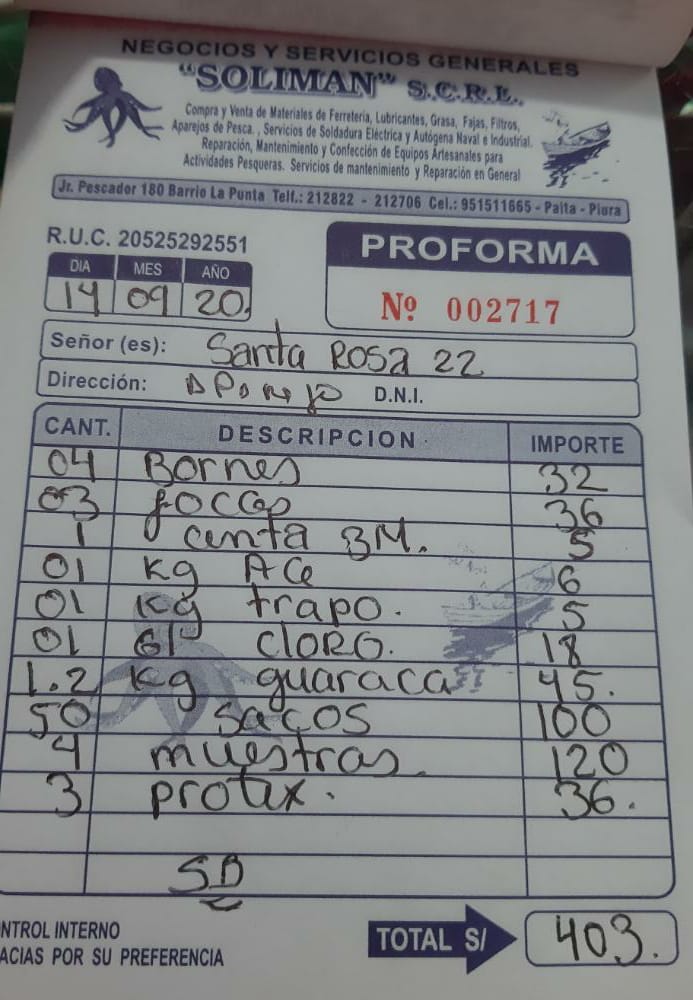 NEGOCIOS Y SERVICIOS GENERALES
"SOLIMAN" S.C.R.L.
Compra y Venta de Materiales de Ferretería, Lubricantes, Grasa, Fajas, Filtros,
Aparejos de Pesca. , Servicios de Soldadura Eléctrica y Autógena Naval e Industrial.
Reparación, Mantenimiento y Confección de Equipos Artesanales para
Actividades Pesqueras. Servicios de mantenimiento y Reparación en General
Jr. Pescador 180 Barrio La Punta Telf.: 212822 - 212706 Cel.: 951511665 - Paita - Piura
R.U.C. 20525292551
PROFORMA
DIA MES AÑO
14 09 20.
Nº 002717
Señor (es): Santa Rosa 22
Dirección: D.N.I.
CANT. DESCRIPCION IMPORTE
04 Bornes 32
03 focos 36
1 cinta 3M. 5
01 kg ACe 6
01 kg trapo. 5
01 Gl CLORO. 18
1.2 kg guaraca 45.
50 sacos 100
4 muestras. 120
3 protex. 36.
SD
NTROL INTERNO
ACIAS POR SU PREFERENCIA
TOTAL S/ 403.